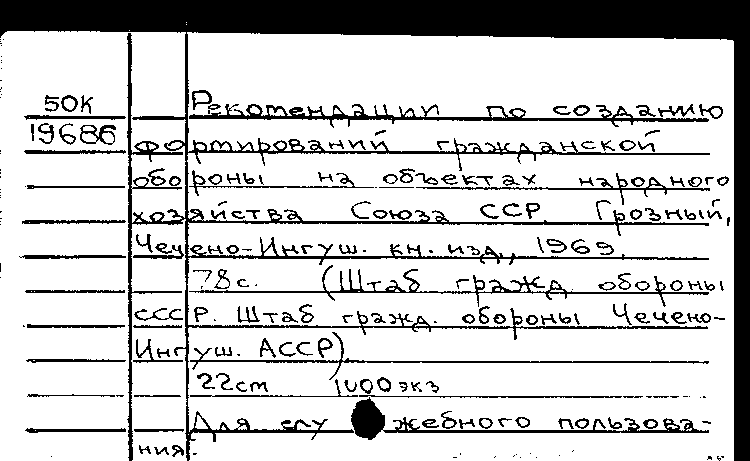 50К Рекомендации по созданию
19686 формирований гражданской
обороны на объектах народного
хозяйства Союза ССР. Грозный,
Чечено-Ингуш. кн. изд., 1969.
78с. (Штаб гражд. обороны
СССР. Штаб гражд. обороны Чечено-
Ингуш. АССР).
22см 1000 экз
Для служебного пользова-
ния.